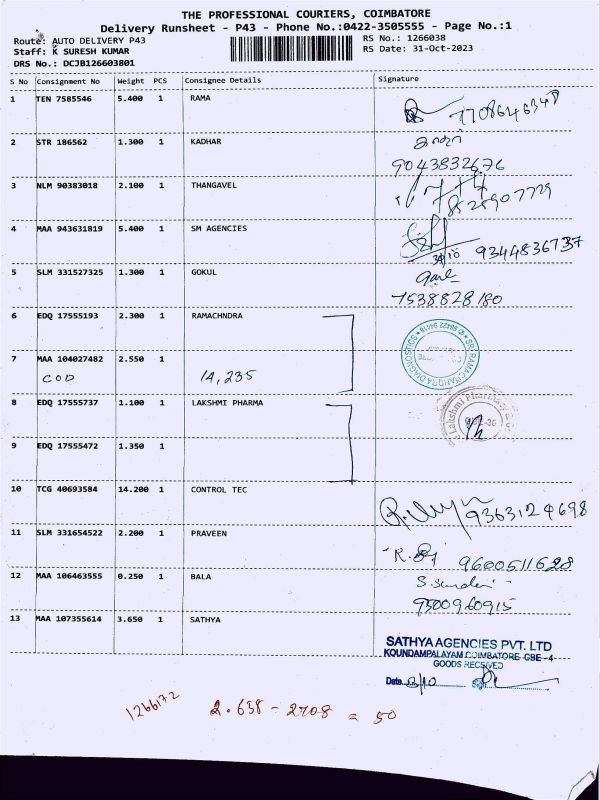 THE PROFESSIONAL COURIERS, COIMBATORE
Delivery Runsheet - P43 - Phone No.:0422-3505555 - Page No.:1
Route: AUTO DELIVERY P43
RS No.: 1266038
Staff: K SURESH KUMAR
RS Date: 31-Oct-2023
DRS No.: DCJB126603801
S No Consignment No Weight PCS Consignee Details Signature
1 TEN 7585546 5.400 1 RAMA
2 STR 186562 1.300 1 KADHAR
9043832676
3 NLM 90383018 2.100 1 THANGAVEL
8525907779
4 MAA 943631819 5.400 1 SM AGENCIES 9344836737
5 SLM 331527325 1.300 1 GOKUL
7538828180
6 EDQ 17555193 2.300 1 RAMACHNDRA
SRI RAMACHANDRA DIAGNOSTICS
7 MAA 104027482 2.550 1
COD 14,235
8 EDQ 17555737 1.100 1 LAKSHMI PHARMA
Lakshmi Pharma
9 EDQ 17555472 1.350 1
10 TCG 40693584 14.200 1 CONTROL TEC
9363124698
11 SLM 331654522 2.200 1 PRAVEEN
9600511628
12 MAA 106463555 0.250 1 BALA
9500960915
13 MAA 107355614 3.650 1 SATHYA
SATHYA AGENCIES PVT. LTD
KOUNDAMPALAYAM COIMBATORE CBE -4
GOODS RECEIVED
Date Sign
1266172 2.658 - 2708 = 50